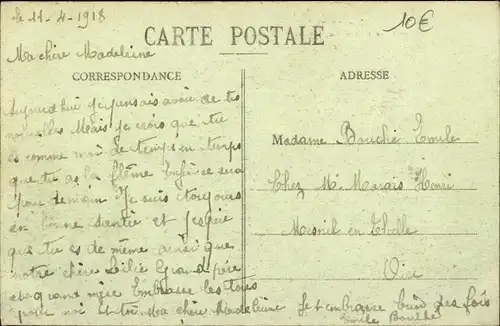 le 11-4-1918
10€
CARTE POSTALE
Ma chère Madeleine
CORRESPONDANCE
Aujourd'hui je pensais avoir de tes
nouvelles Mais je crois que tu
es comme moi de temps en temps
que tu as la flême Enfin ce sera
pour demain Je suis toujours
en bonne santée et j'espère
que tu es de même ainsi que
notre chère Lilie Grand père
et grand mère Embrasse les tous
pour moi et toi Ma chère Madeleine
Je t'embrasse bien des fois
Emile Bouché
ADRESSE
Madame Bouché Emile
Chez Mr Marais Henri
Mesnil en Thelle
Oise